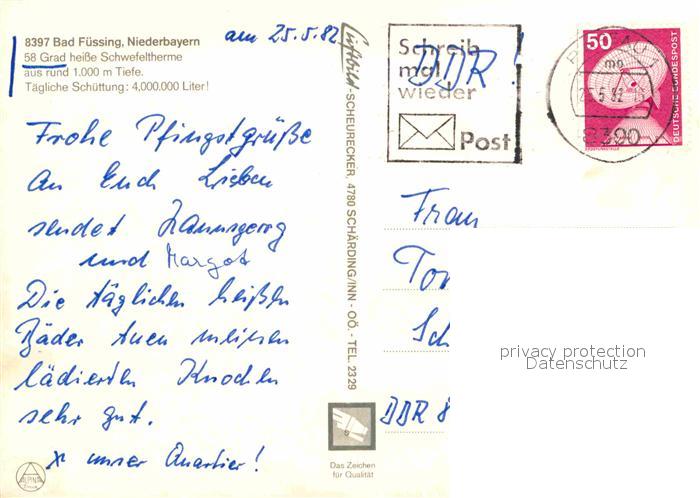 8397 Bad Füssing, Niederbayern
58 Grad heiße Schwefeltherme
aus rund 1.000 m Tiefe.
Tägliche Schüttung: 4,000.000 Liter!
am 25.5.82
Frohe Pfingstgrüße
an Euch Lieben
sendet Hannsgeorg
und Margot
Die täglichen heißen
Bäder tuen meinen
lädierten Knochen
sehr gut.
x unser Quartier!
ALPINA
Luftbild-SCHEURECKER, 4780 SCHÄRDING/INN - OÖ. - TEL. 23 29
Das Zeichen
für Qualität
Schreib
mal
wieder
Post
DDR!
50
DEUTSCHE BUNDESPOST
mn
5.82
8390
Frau
DDR 8
privacy protection
Datenschutz